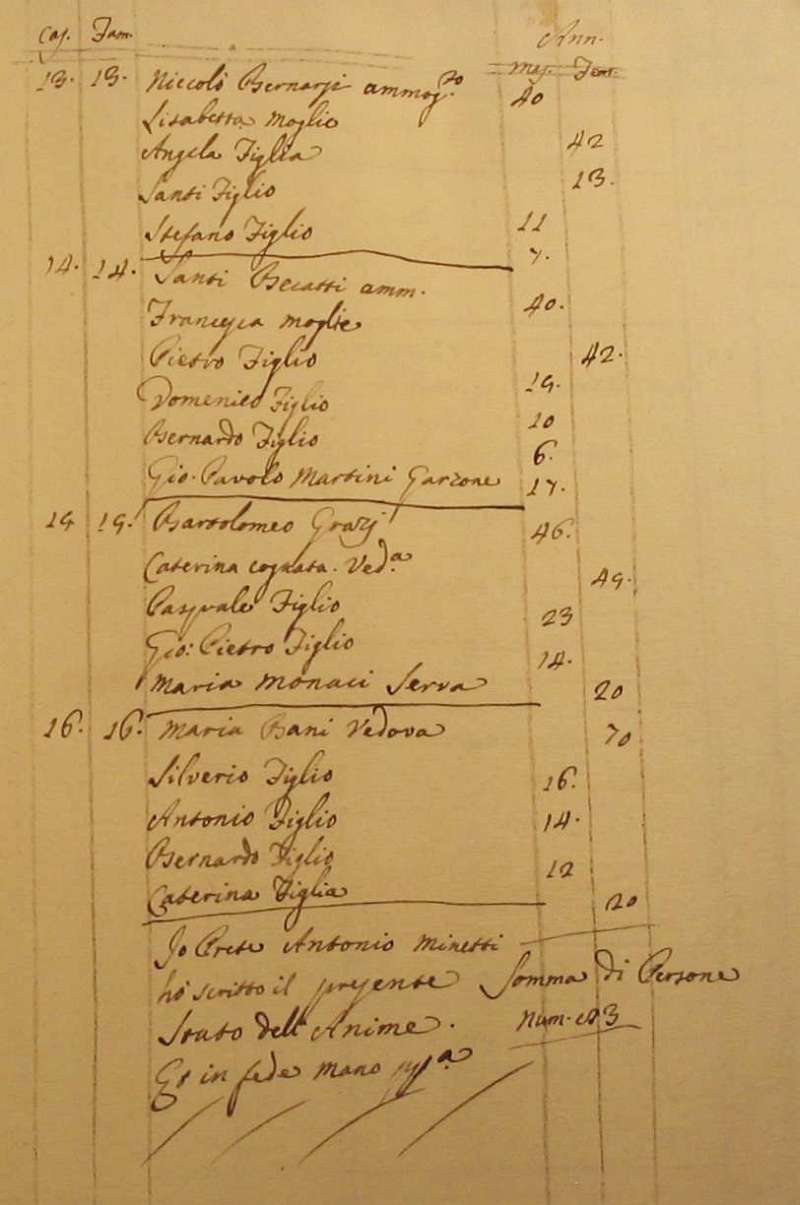 Cas. Fam. Ann.
Mas. Fem.
13. 13. Niccolò Bernarji ammog.to 40
Lisabetta Moglie 42
Angela Figlia 13.
Santi Figlio 11
Stefano Figlio 7.
14. 14. Santi Becatti amm. 40.
Francesca Moglie 42.
Pietro Figlio 19.
Domenico Figlio 10
Bernardo Figlio 6.
Gio. Pavolo Martini Garzone 17.
15 15. Bartolomeo Grazj 46.
Caterina cognata. Ved.a 49.
Pasquale Figlio 23
Gio: Pietro Figlio 14.
Maria Monaci Serva 20
16. 16. Maria Bani Vedova 70
Silverio Figlio 16.
Antonio Figlio 14.
Bernardo Figlio 12
Caterina Figlia 20
Io Prete Antonio Minetti
hò scritto il presente Somma di Persone
Stato dell'Anime. Num.
Et in fede mano pp.a